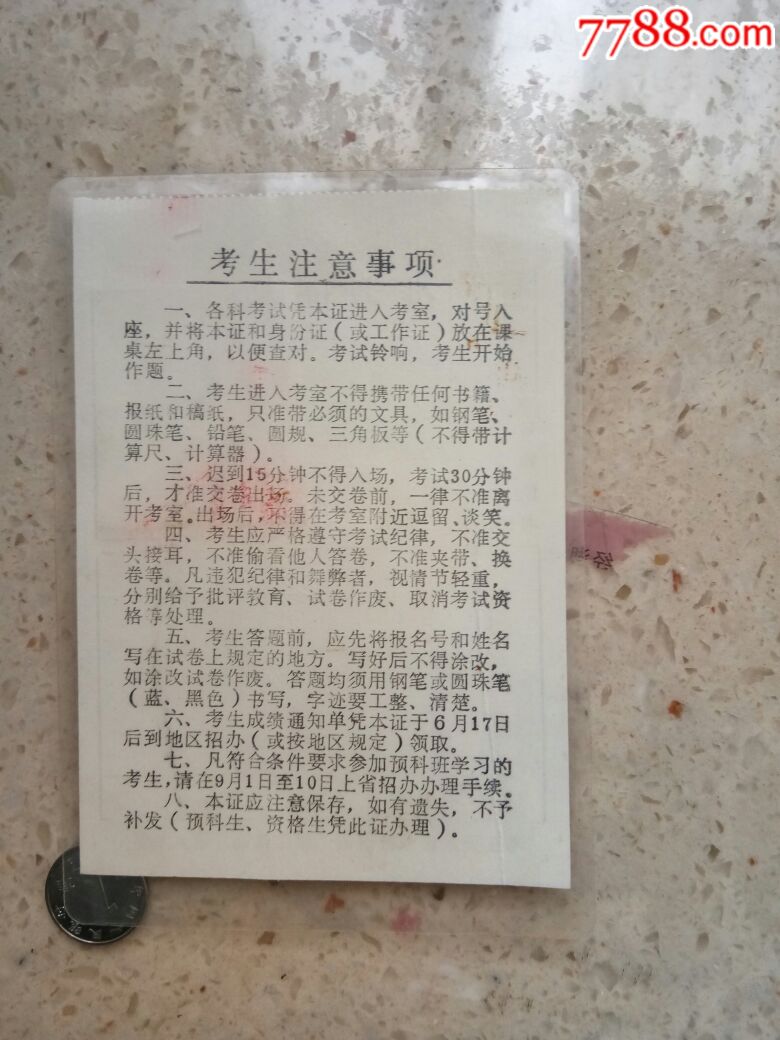 7788.com
考生注意事项
一、各科考试凭本证进入考室，对号入
座，并将本证和身份证（或工作证）放在课
桌左上角，以便查对。考试铃响，考生开始
作题。
二、考生进入考室不得携带任何书籍、
报纸和稿纸，只准带必须的文具，如钢笔、
圆珠笔、铅笔、圆规、三角板等（不得带计
算尺、计算器）。
三、迟到15分钟不得入场，考试30分钟
后，才准交卷出场。未交卷前，一律不准离
开考室。出场后，不得在考室附近逗留、谈笑。
四、考生应严格遵守考试纪律，不准交
头接耳，不准偷看他人答卷，不准夹带、换
卷等。凡违犯纪律和舞弊者，视情节轻重，
分别给予批评教育、试卷作废、取消考试资
格等处理。
五、考生答题前，应先将报名号和姓名
写在试卷上规定的地方。写好后不得涂改，
如涂改试卷作废。答题均须用钢笔或圆珠笔
（蓝、黑色）书写，字迹要工整、清楚。
六、考生成绩通知单凭本证于6月17日
后到地区招办（或按地区规定）领取。
七、凡符合条件要求参加预科班学习的
考生，请在9月1日至10日上省招办办理手续。
八、本证应注意保存，如有遗失，不予
补发（预科生、资格生凭此证办理）。